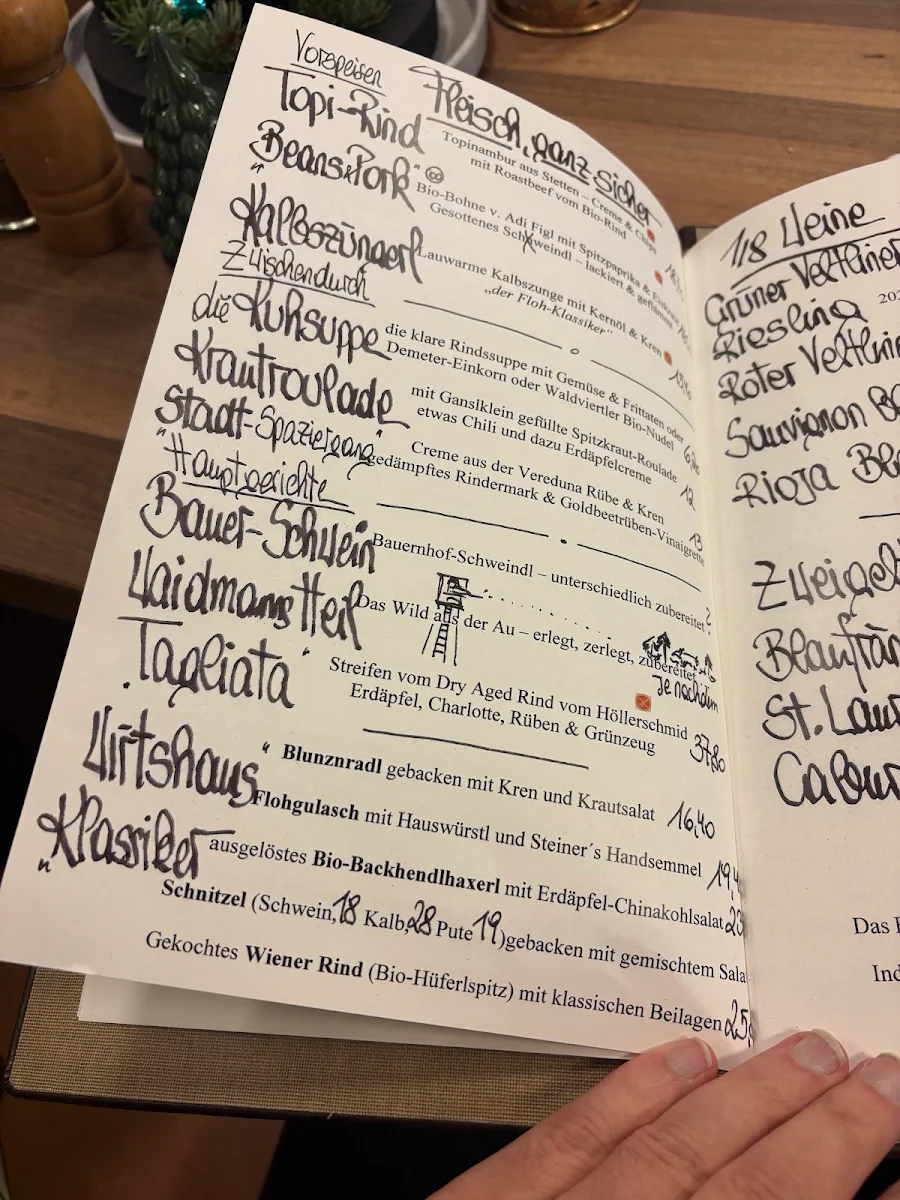 Vorspeisen
Fleisch, ganz sicher
Topi-Rind
Topinambur aus Stetten – Creme & Chips
mit Roastbeef vom Bio-Rind
"Beans&Pork"
Bio-Bohne v. Adi Figl mit Spitzpaprika &
Gesottenes Schweindl – lackiert & geflammt
Kalbszüngerl
Lauwarme Kalbszunge mit Kernöl & Kren
„der Floh-Klassiker"
Zwischendurch
die Kuhsuppe
die klare Rindssuppe mit Gemüse & Frittaten oder
Demeter-Einkorn oder Waldviertler Bio-Nudel
Krautroulade
mit Ganslklein gefüllte Spitzkraut-Roulade
etwas Chili und dazu Erdäpfelcreme
12
"Stadt-Spaziergang"
Creme aus der Vereduna Rübe & Kren
gedämpftes Rindermark & Goldbeetrüben-Vinaigrette
13
Hauptgerichte
Bauer-Schwein
Bauernhof-Schweindl – unterschiedlich zubereitet ?
Waidmanns Heil
Das Wild aus der Au – erlegt, zerlegt, zubereitet
Je nachdem
"Tagliata"
Streifen vom Dry Aged Rind vom Höllerschmid
Erdäpfel, Charlotte, Rüben & Grünzeug
37,80
Wirtshaus"
"Klassiker
Blunznradl gebacken mit Kren und Krautsalat 16,40
Flohgulasch mit Hauswürstl und Steiner´s Handsemmel 19,4
ausgelöstes Bio-Backhendlhaxerl mit Erdäpfel-Chinakohlsalat 23
Schnitzel (Schwein, 18 Kalb, 28 Pute 19) gebacken mit gemischtem Sala
Gekochtes Wiener Rind (Bio-Hüferlspitz) mit klassischen Beilagen 25,
1/8 Weine
Grüner Veltliner
202
Riesling
Roter Veltlin
Sauvignon Bl
Rioja Bla
Zweigel
Blaufrän
St. Laur
Caber
Das
Ind